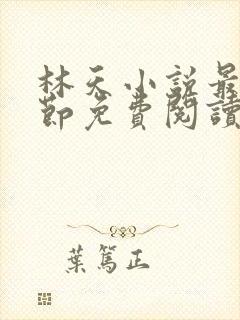 林天小說最
節免費閱讀
葉篤正